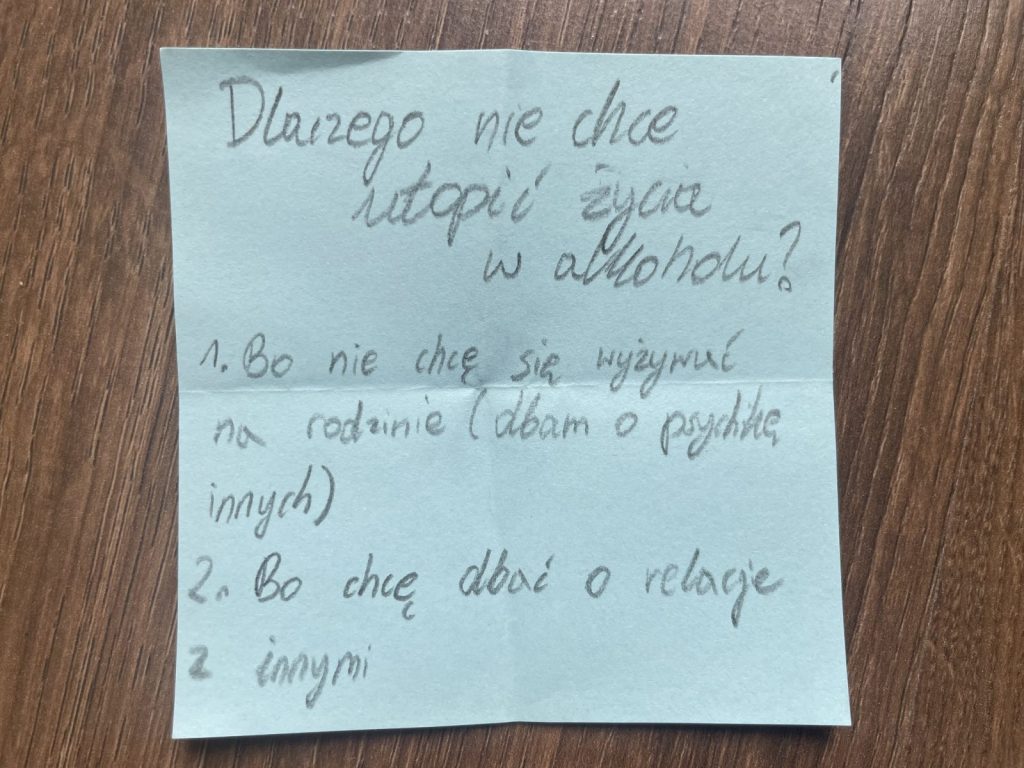 Dlaczego nie chce
utopić życia
w alkoholu?
1. Bo nie chcę się wyżywać
na rodzinie (dbam o psychikę
innych)
2. Bo chcę dbać o relacje
z innymi